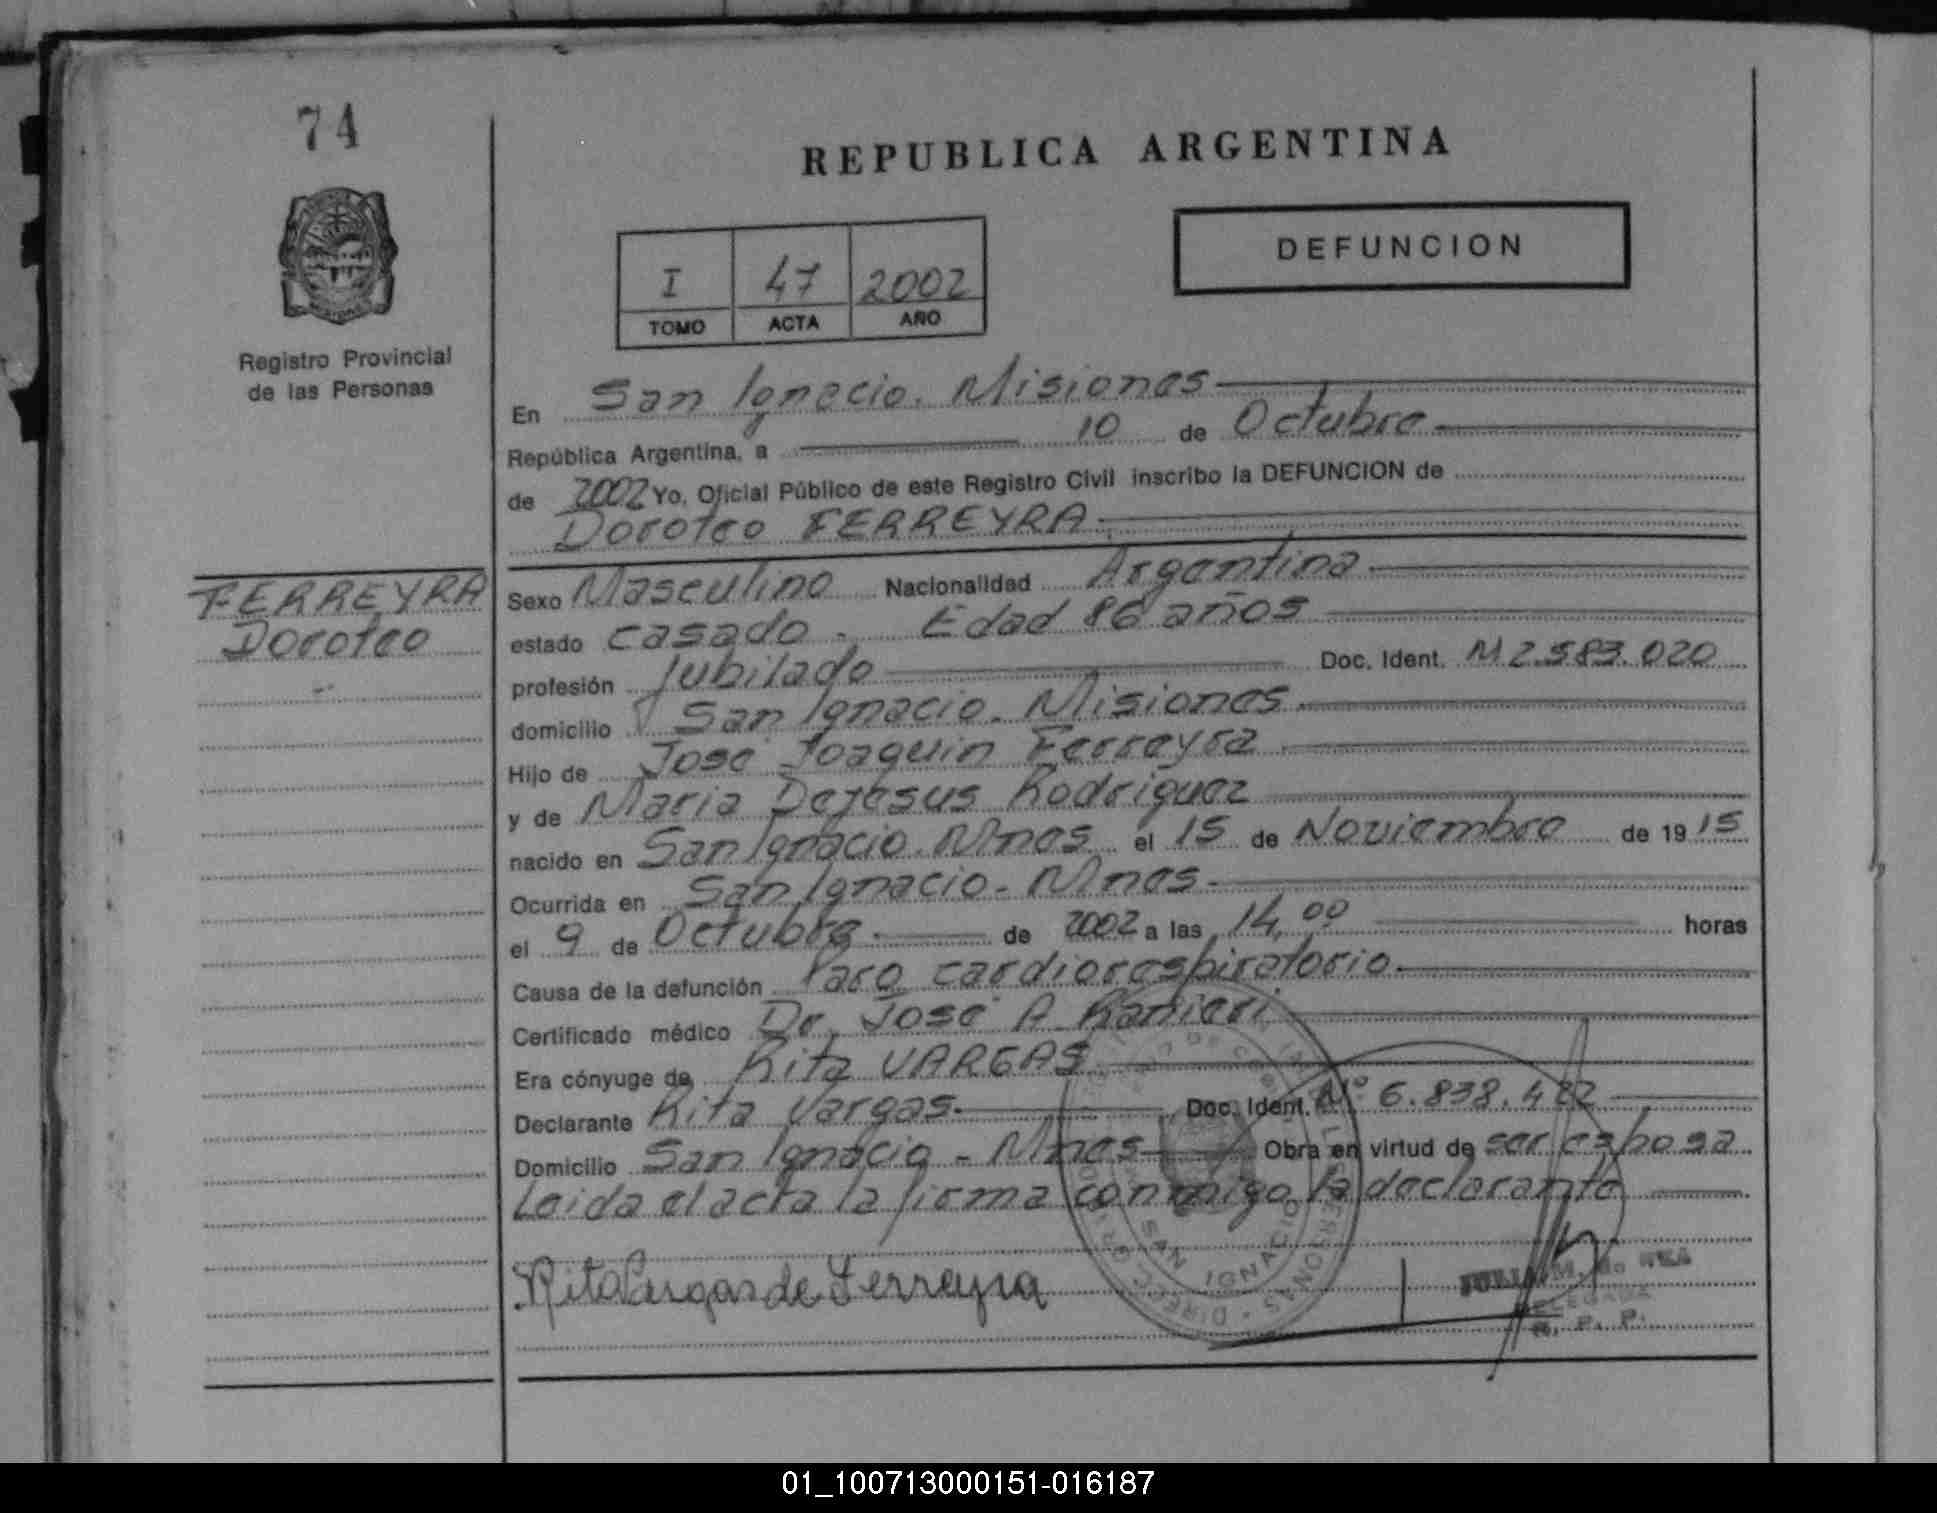 74
REPUBLICA ARGENTINA
DEFUNCION
I 47 2002
TOMO ACTA AÑO
Registro Provincial
de las Personas
En San Ignacio. Misiones
República Argentina, a 10 de Octubre
de 2002 Yo, Oficial Público de este Registro Civil inscribo la DEFUNCION de
Doroteo FERREYRA
FERREYRA
Doroteo
Sexo Masculino Nacionalidad Argentina
estado casado. Edad 86 años
profesión Jubilado Doc. Ident. M 2.583.020
domicilio San Ignacio. Misiones.
Hijo de José Joaquin Ferreyra
y de Maria Dejesus Rodriguez
nacido en San Ignacio. Mnes el 15 de Noviembre de 1915
Ocurrida en San Ignacio - Mnes -
el 9 de Octubre de 2002 a las 14,00 horas
Causa de la defunción Paro cardiorespiratorio.
Certificado médico Dr. José A. Ranieri
Era cónyuge de Rita VARGAS
Declarante Rita Vargas. Doc. Ident. Nº 6.838.422
Domicilio San Ignacio - Mnes Obra en virtud de ser esposa
Leida el acta la firma conmigo la declarante
Rita Vargas de Ferreyra
SAN IGNACIO
R. P. P.
01_100713000151-016187